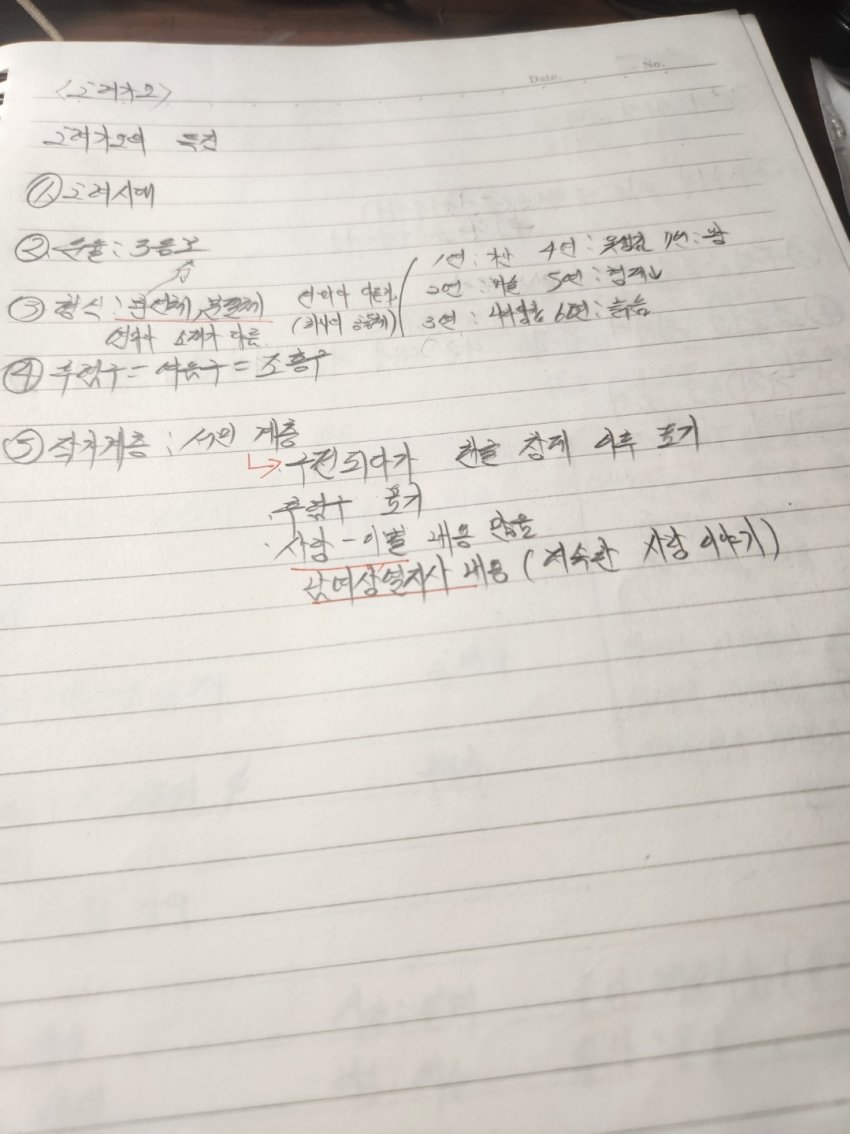 Date. No.
<고려가요>
고려가요의 특징
① 고려시대
② 운율: 3음보
③ 형식: 분연체, 분절체 연마다 다른
연마다 소재가 다름. (하나의 공동체)
1연: 4연: 7연:
2연: 5연:
3연: 6연:
④ 후렴구 = 여음구 = 조흥구
⑤ 작가계층: 서민 계층
↳ 구전되다가 한글 창제 이후 표기
· 후렴구 표기
· 사랑-이별 내용 많음
남여상열지사 내용 (저속한 사랑 이야기)